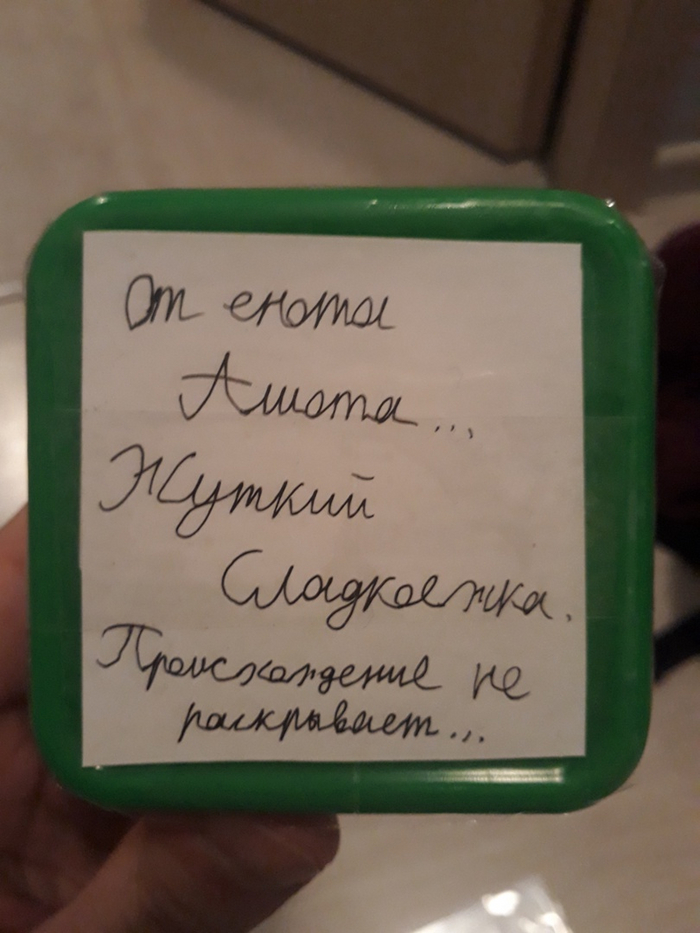 От енота
Ашота...
Жуткий
Сладкоежка.
Происхождение не
раскрывает...